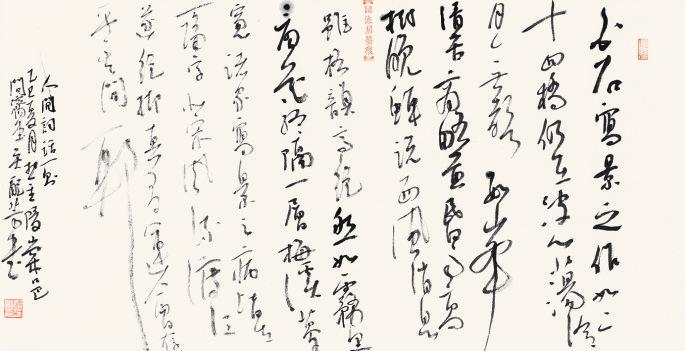 白石寫景之作如二
十四橋仍在波心蕩冷
月無聲數峯
清苦商略黃昏雨高
樹晚蟬說西風消息
雖格韻高絕然如霧里
看花終隔一層梅溪夢
窗諸家寫景之病皆在
一隔字北宋風流渡江
遂絕抑真有運會存
乎其間耶
人間詞話一則
乙巳夏月於棠邑